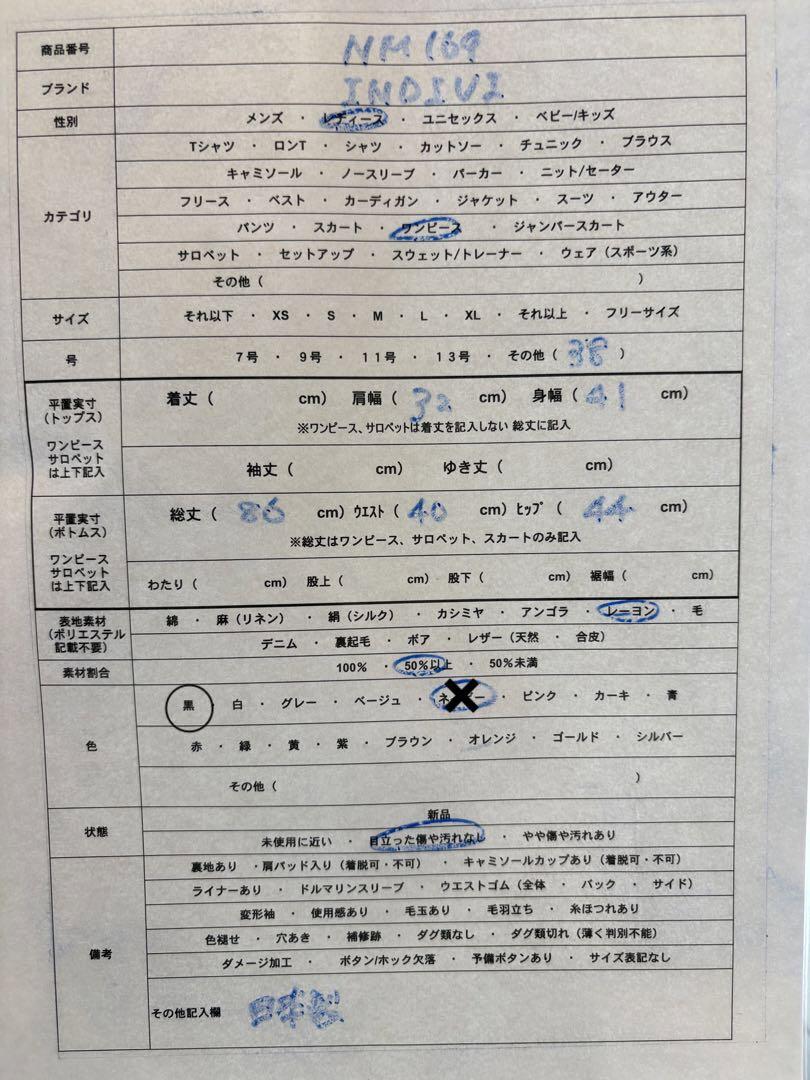 商品番号 NM169
ブランド INDIVI
性別 メンズ ・ レディース ・ ユニセックス ・ ベビー/キッズ
カテゴリ
Tシャツ ・ ロンT ・ シャツ ・ カットソー ・ チュニック ・ ブラウス
キャミソール ・ ノースリーブ ・ パーカー ・ ニット/セーター
フリース ・ ベスト ・ カーディガン ・ ジャケット ・ スーツ ・ アウター
パンツ ・ スカート ・ ワンピース ・ ジャンパースカート
サロペット ・ セットアップ ・ スウェット/トレーナー ・ ウェア（スポーツ系）
その他（ ）
サイズ それ以下 ・ XS ・ S ・ M ・ L ・ XL ・ それ以上 ・ フリーサイズ
号 7号 ・ 9号 ・ 11号 ・ 13号 ・ その他（ 38 ）
平置実寸
（トップス）
ワンピース
サロペット
は上下記入
着丈（ cm） 肩幅（ 32 cm） 身幅（ 41 cm）
※ワンピース、サロペットは着丈を記入しない 総丈に記入
袖丈（ cm） ゆき丈（ cm）
平置実寸
（ボトムス）
ワンピース
サロペット
は上下記入
総丈（ 86 cm）ｳｴｽﾄ（ 40 cm）ﾋｯﾌﾟ（ 44 cm）
※総丈はワンピース、サロペット、スカートのみ記入
わたり（ cm） 股上（ cm） 股下（ cm） 裾幅（ cm）
表地素材
（ポリエステル
記載不要）
綿 ・ 麻（リネン） ・ 絹（シルク） ・ カシミヤ ・ アンゴラ ・ レーヨン ・ 毛
デニム ・ 裏起毛 ・ ボア ・ レザー（天然 ・ 合皮）
素材割合 100% ・ 50%以上 ・ 50%未満
色
黒 ・ 白 ・ グレー ・ ベージュ ・ ネイビー ・ ピンク ・ カーキ ・ 青
赤 ・ 緑 ・ 黄 ・ 紫 ・ ブラウン ・ オレンジ ・ ゴールド ・ シルバー
その他（ ）
状態
新品
未使用に近い ・ 目立った傷や汚れなし ・ やや傷や汚れあり
備考
裏地あり ・肩パッド入り（着脱可・不可） ・ キャミソールカップあり（着脱可・不可）
ライナーあり ・ ドルマリンスリーブ ・ ウエストゴム（全体 ・ バック ・ サイド）
変形袖 ・ 使用感あり ・ 毛玉あり ・ 毛羽立ち ・ 糸ほつれあり
色褪せ ・ 穴あき ・ 補修跡 ・ タグ類なし ・ タグ類切れ（薄く判別不能）
ダメージ加工 ・ ボタン/ホック欠落 ・ 予備ボタンあり ・ サイズ表記なし
その他記入欄 日本製